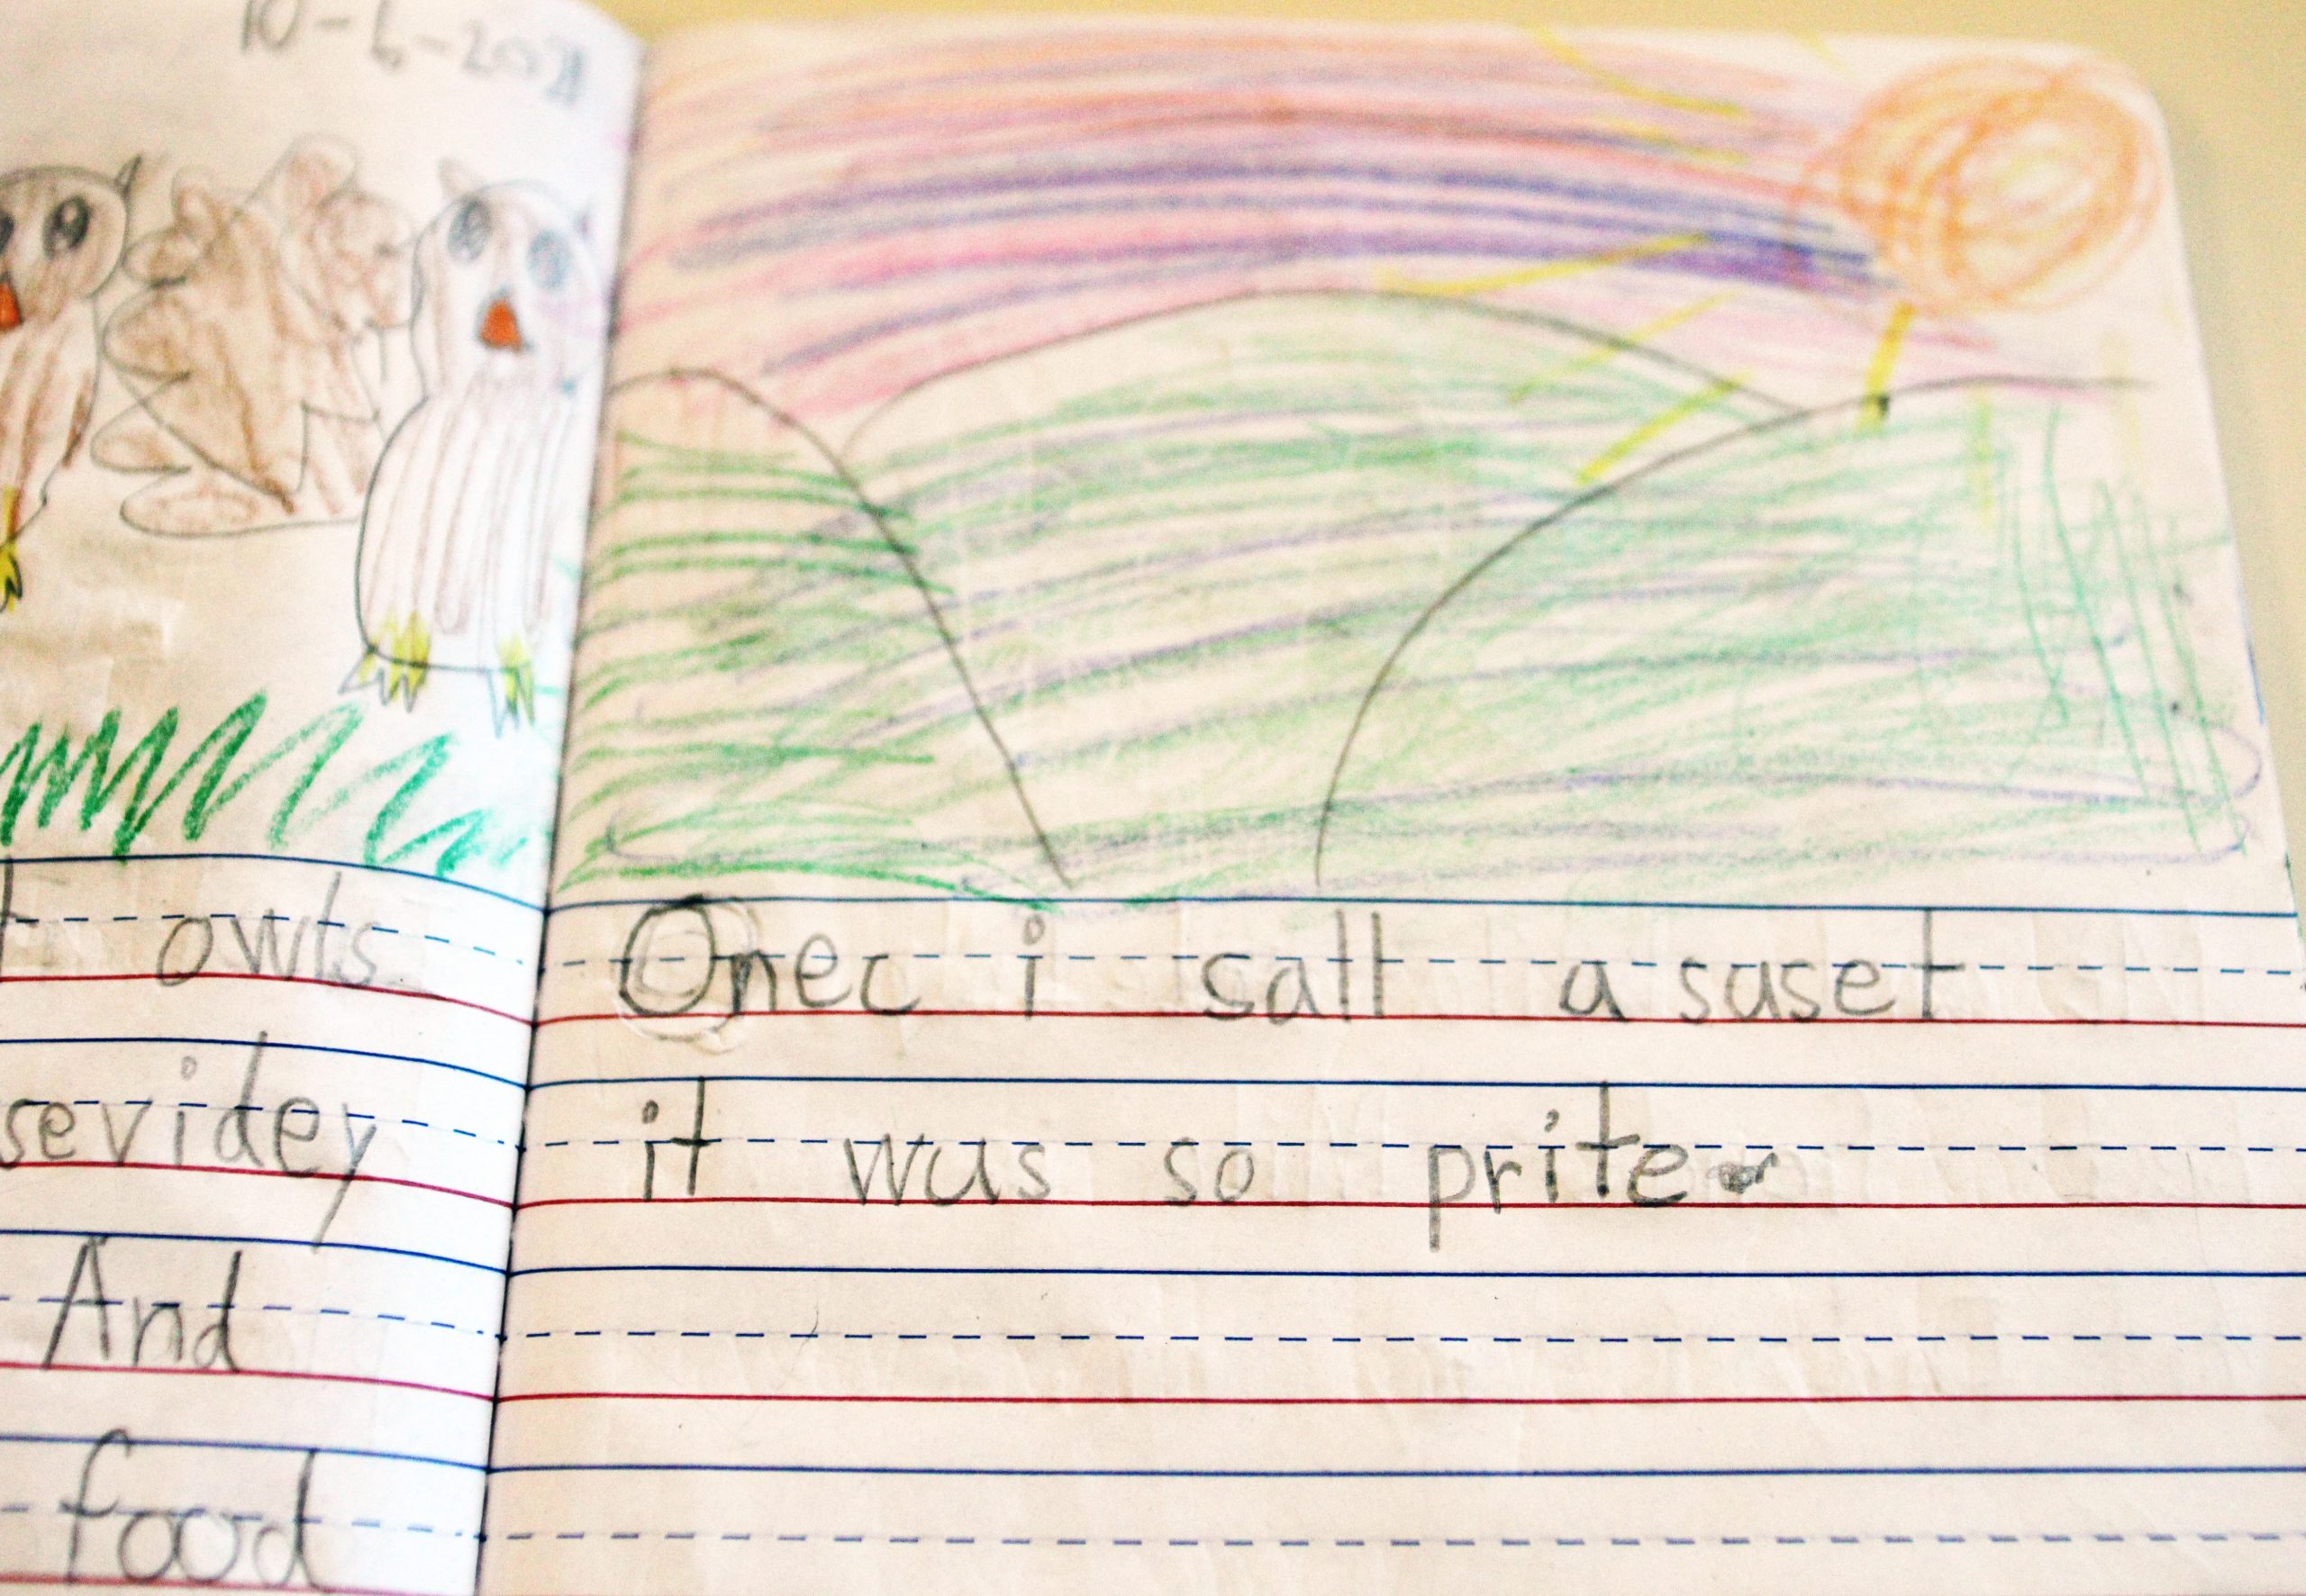 10-6-2021
owls
sevidey
And
food
Onec i sall a suset
it wus so prite.